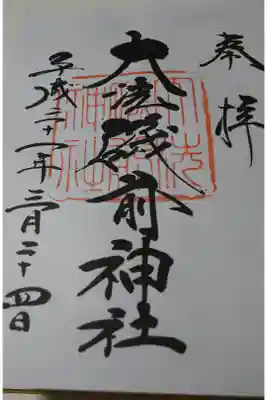 奉拝
大洗磯前神社
平成三十一年三月二十四日